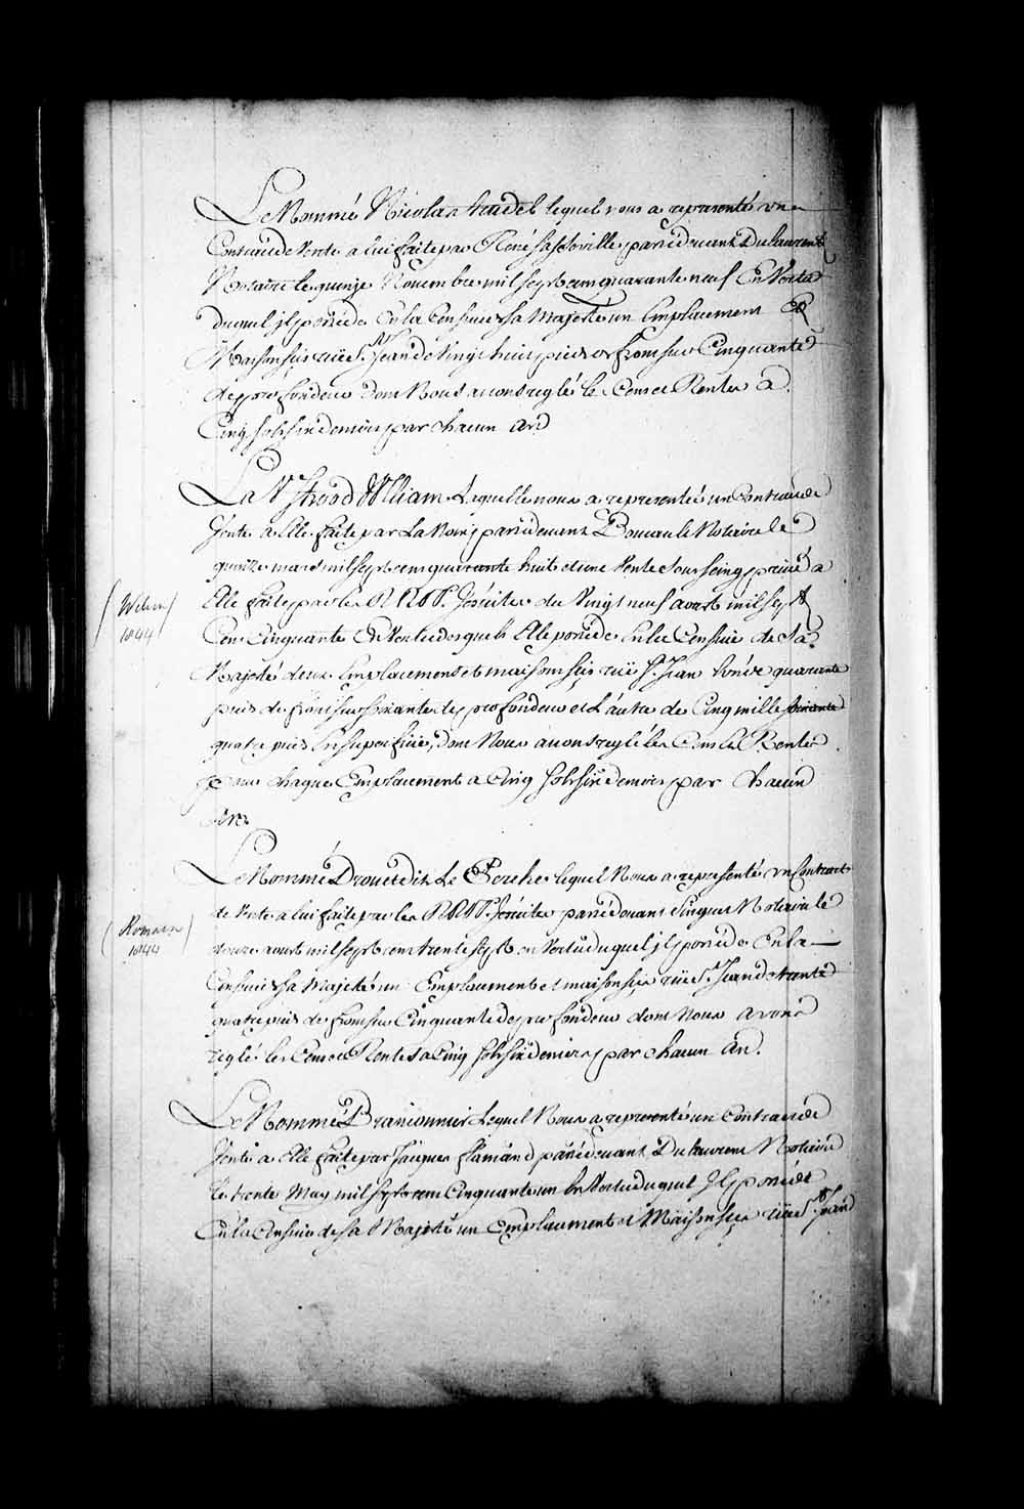 Le Nommé Nicolas lequel nous a representé un
Contract de Vente a lui faite par René pardevant Dulaurent
Notaire le quinze Novembre mil sept cent quarante neuf En Vertu
duquel il possede En la Censive de Sa Majesté un Emplacement Et
Maison sis rüe St. Jean de Vingt huit pieds de front sur Cinquante
de profondeur dont Nous avons reglé le Cens et Rentes a
Cinq sols six deniers par chacun an
La Ve. William Laquelle nous a representé un Contract de
Vente a Elle faite par pardevant Notaire le
quinze mars mil sept cent quarante huit et une Vente Sous seing privé a
Elle faite par les RR. PP. Jesuites du Vingt neuf aoust mil sept
Cent Cinquante En Vertu desquels Elle possede En la Censive de Sa
Majesté deux Emplacements et maisons sis rüe St. Jean quarante
pieds de front sur soixante de profondeur et L'autre de Cinq mille soixante
quatre pieds En Superficie, dont Nous avons reglé les Cens et Rentes
pour chaque Emplacement a Cinq sols six deniers par chacun
an
Le Nommé Drouet dit Le Perche lequel Nous a representé un Contract
de Vente a lui faite par les RR. PP. Jesuites pardevant Pinguet Notaire le
douze aoust mil sept cent trente sept en Vertu duquel il possede En la
Censive de Sa Majesté un Emplacement et maison sis rüe St. Jean de trente
quatre pieds de front sur Cinquante de profondeur dont Nous avons
reglé les Cens et Rentes a Cinq sols six deniers par chacun an.
Le Nommé Lequel Nous a representé un Contract de
Vente a Elle faite par Jacques Flamand pardevant Dulaurent Notaire
le trente May mil sept cent Cinquante un En Vertu duquel Il possede
En la Censive de Sa Majesté un Emplacement et Maison sis rüe St. Jean
(Wilson)
1844
(Romain)
1844